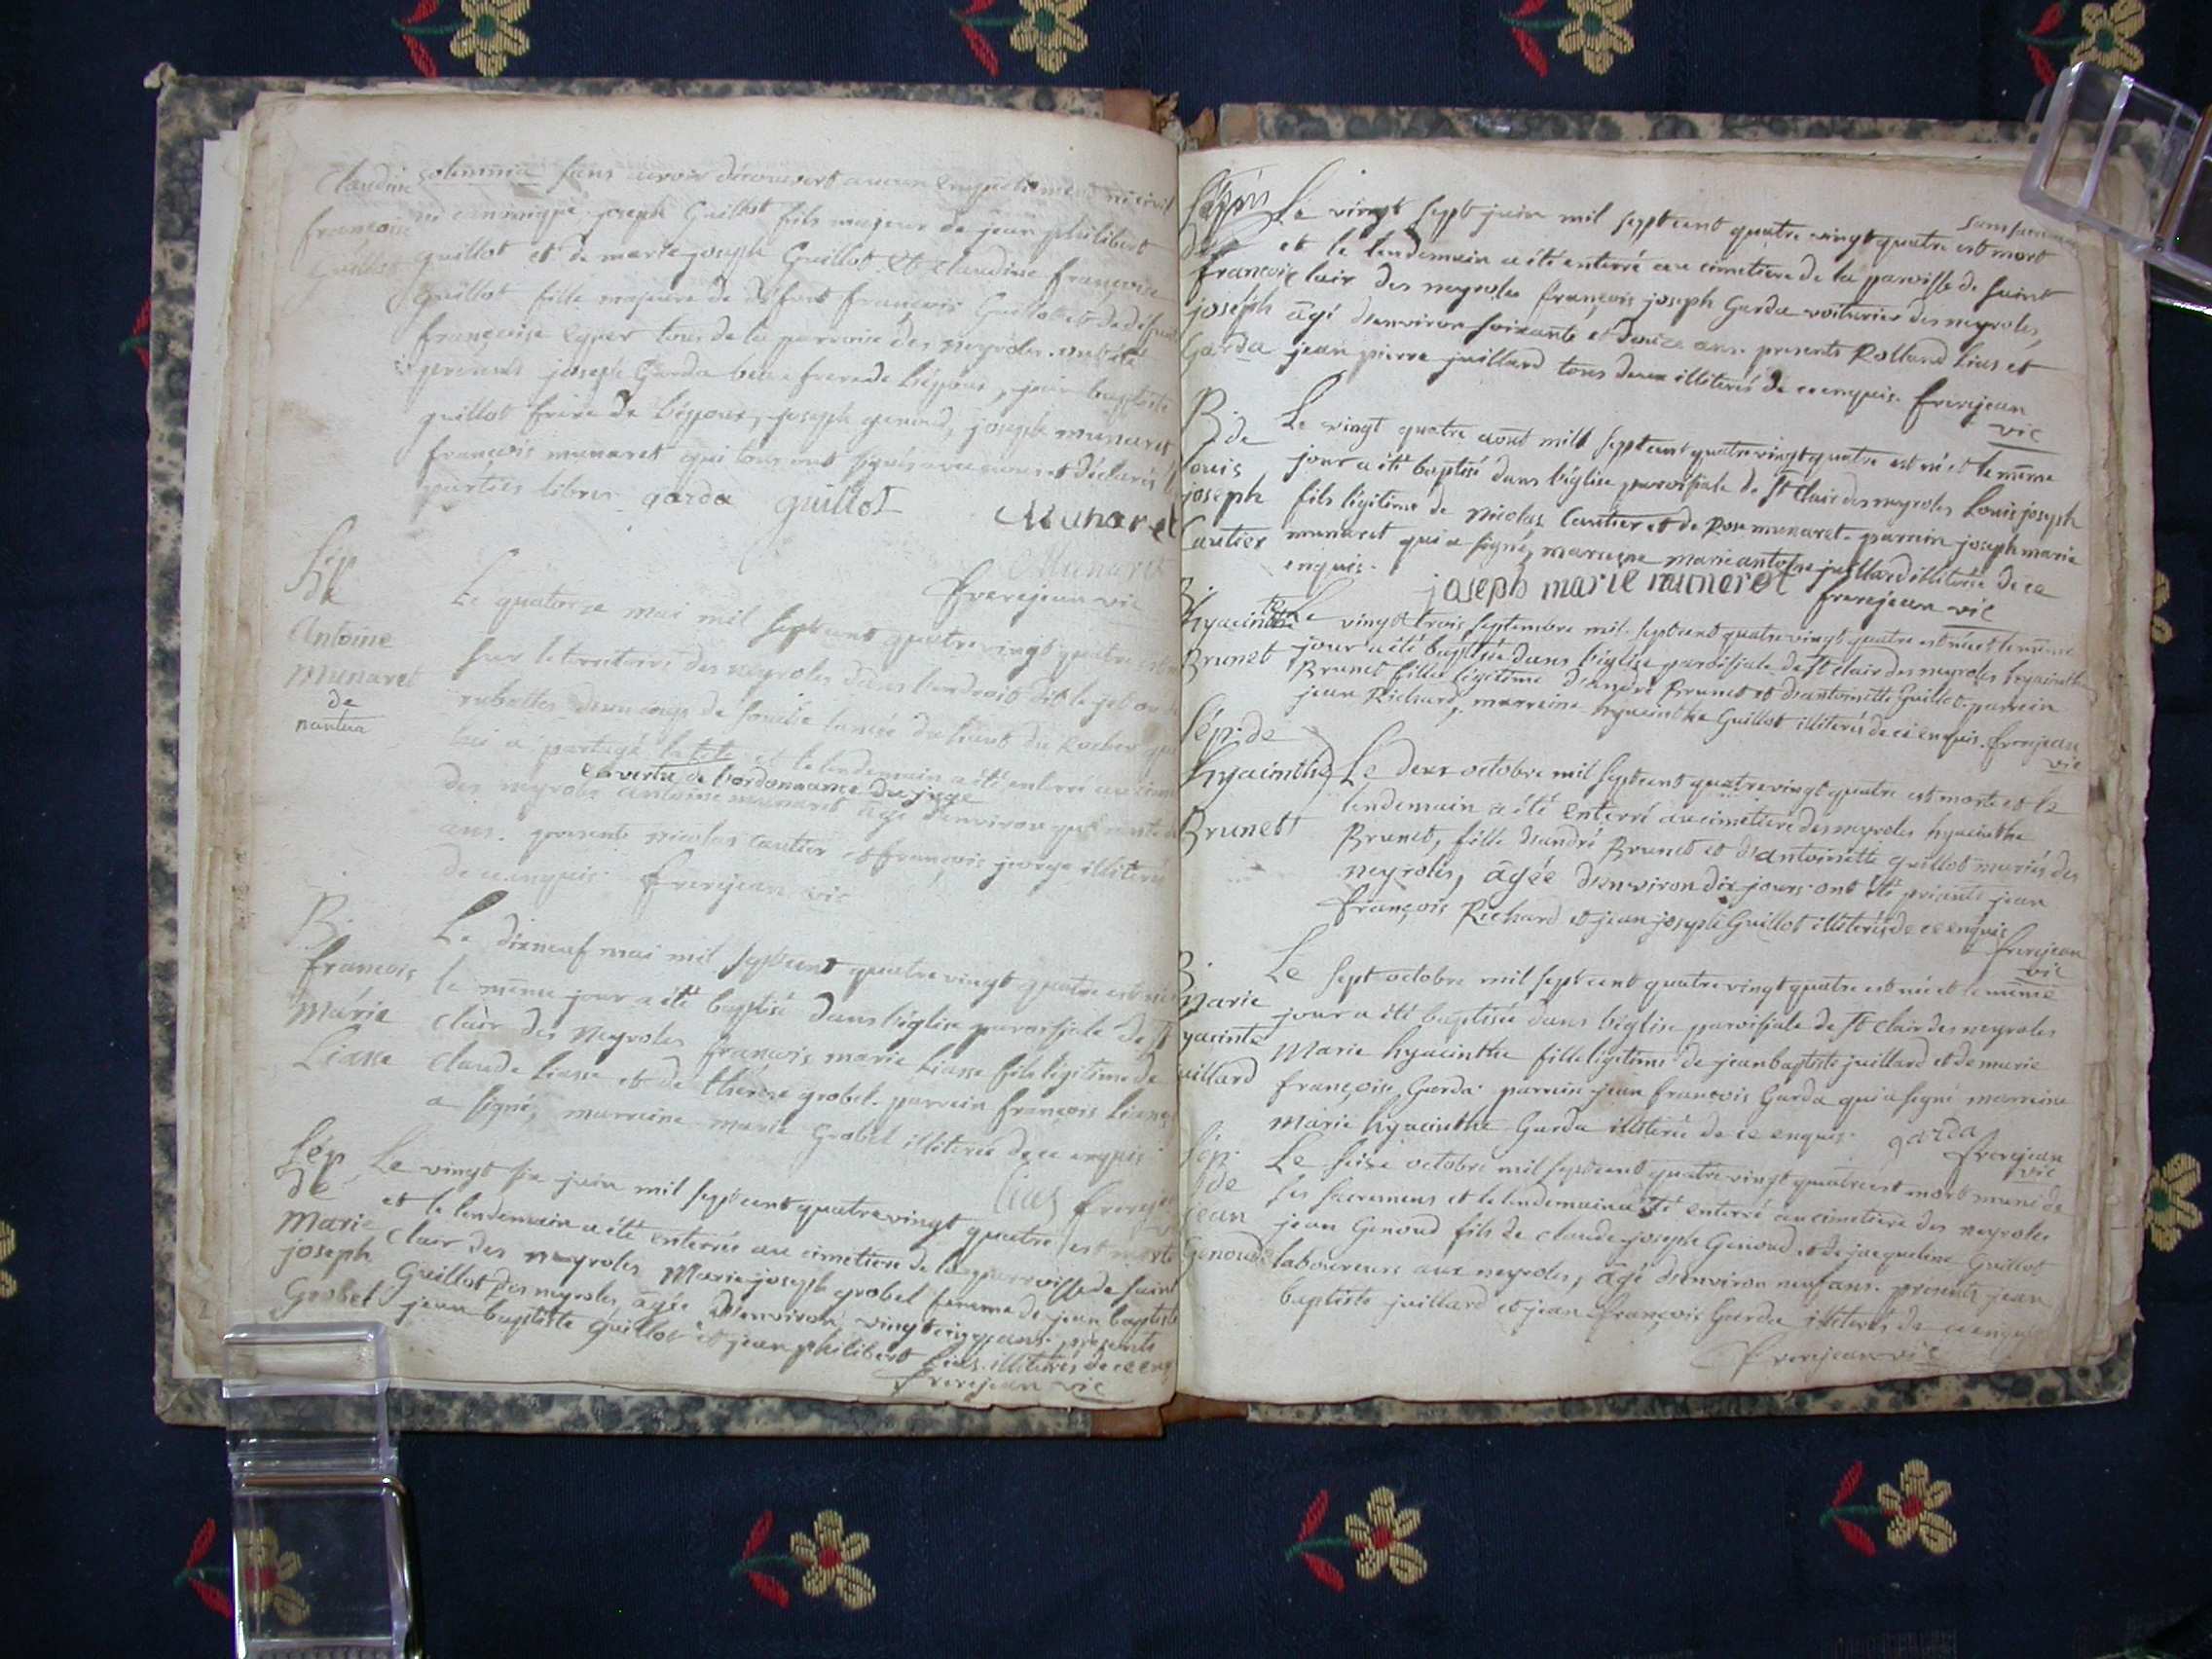 Claudine solemnia sans avoir découvert aucun empechement ni civil
françoise ni canonique joseph Guillot fils majeur de jean philibert
Guillot guillot et de marie joseph Guillot et claudine françoise
guillot fille majeure de défunt françois Guillot et de défunte
françoise tous de la parroisse des neyroles. ont été
presents joseph Garda beau frere de l'époux, jean baptiste
guillot frere de l'épouse, joseph genoud, joseph munaret
françois munaret qui tous ont signés avec nous et déclarés les
parties libres garda guillot
Munaret
Munaret
frerejean vic
Sép.
de
Antoine
Munaret
de
nantua
Le quatorze mai mil sept cent quatre vingt quatre est mort
sur le territoire des neyroles dans l'endroit dit le jet ou de
lancée du haut du Rocher qui
lui a partagé la tete et le lendemain a été enterré au cimetiere
en vertu de l'ordonnance du juge
des neyroles antoine munaret agé d'environ
ans. presents nicolas cautier et françois george illiterés
de ce enquis. frerejean vic
B.
françois
Marie
Liasse
Le dixneuf mai mil sept cent quatre vingt quatre est né et
le même jour a été baptisé dans l'église paroissiale de St
clair des Neyroles françois marie Liasse fils légitime de
claude Liasse et de thérèse grobel. parrein françois
a signé, marreine marie Grobel illiterée de ce enquis
lias frerejean
Sép
de
Marie
joseph
Grobel
Le vingt six juin mil sept cent quatre vingt quatre est morte
et le lendemain a été enterrée au cimetiere de la parroisse de saint
clair des neyroles Marie joseph grobel femme de jean baptiste
Guillot des neyroles, agée d'environ vingt cinq ans. présents
jean baptiste guillot et jean philibert Lias illiterés de ce enq
frerejean vic
Sép.
de
françois
joseph
Garda
Le vingt sept juin mil sept cent quatre vingt quatre est mort
et le lendemain a été enterré au cimetiere de la paroisse de saint
clair des neyroles françois joseph Garda voiturier des neyroles,
âgé d'environ soixante et douze ans. presents Rolland Lias et
jean pierre juillard tous deux illiterés de ce enquis. frerejean
vic
B. de
Louis
joseph
Cautier
Le vingt quatre aout mill sept cent quatre vingt quatre est né et le même
jour a été baptisé dans l'église paroissiale de St Clair des neyroles Louis joseph
fils légitime de nicolas Cautier et de Rose munaret. parrein joseph marie
munaret qui a signé, marreine marie antoine juillard illiterée de ce
enquis.
joseph marie munaret frerejean vic
B.
hyacinthe
Brunet
Le vingt trois septembre mil sept cent quatre vingt quatre est née et le même
jour a été baptisée dans l'église paroissiale de St clair des neyroles hyacinthe
Brunet fille légitime d'andré Brunet et d'antoinette Guillot. parrein
jean Richard, marreine hyacinthe Guillot illiterés de ce enquis. frerejean
vic
Sép: de
hyacinthe
Brunet
Le deux octobre mil sept cent quatre vingt quatre est morte et le
lendemain a été enterré au cimetiere des neyroles hyacinthe
Brunet, fille d'andré Brunet et d'antoinette guillot mariés des
neyroles, agée d'environ dix jours. ont été présents jean
françois Richard et jean joseph Guillot illiterés de ce enquis
frerejean
vic
B.
Marie
hyacinte
juillard
Le sept octobre mil sept cent quatre vingt quatre est née et le même
jour a été baptisée dans l'église paroissiale de St clair des neyroles
Marie hyacinthe fille légitime de jean baptiste juillard et de marie
françoise Garda. parrein jean françois Garda qui a signé marreine
marie hyacinthe Garda illiterée de ce enquis. garda
frerejean
vic
Sép.
de
jean
Genoud
Le seize octobre mil sept cent quatre vingt quatre est mort muni de
ses sacremens et le lendemain a été enterré au cimetiere des neyroles
jean Genoud fils de claude joseph Genoud et de jacqueline Guillot
laboureurs aux neyroles, agé d'environ neuf ans. presents jean
baptiste juillard et jean françois Garda illiterés de ce enquis
frerejean vic